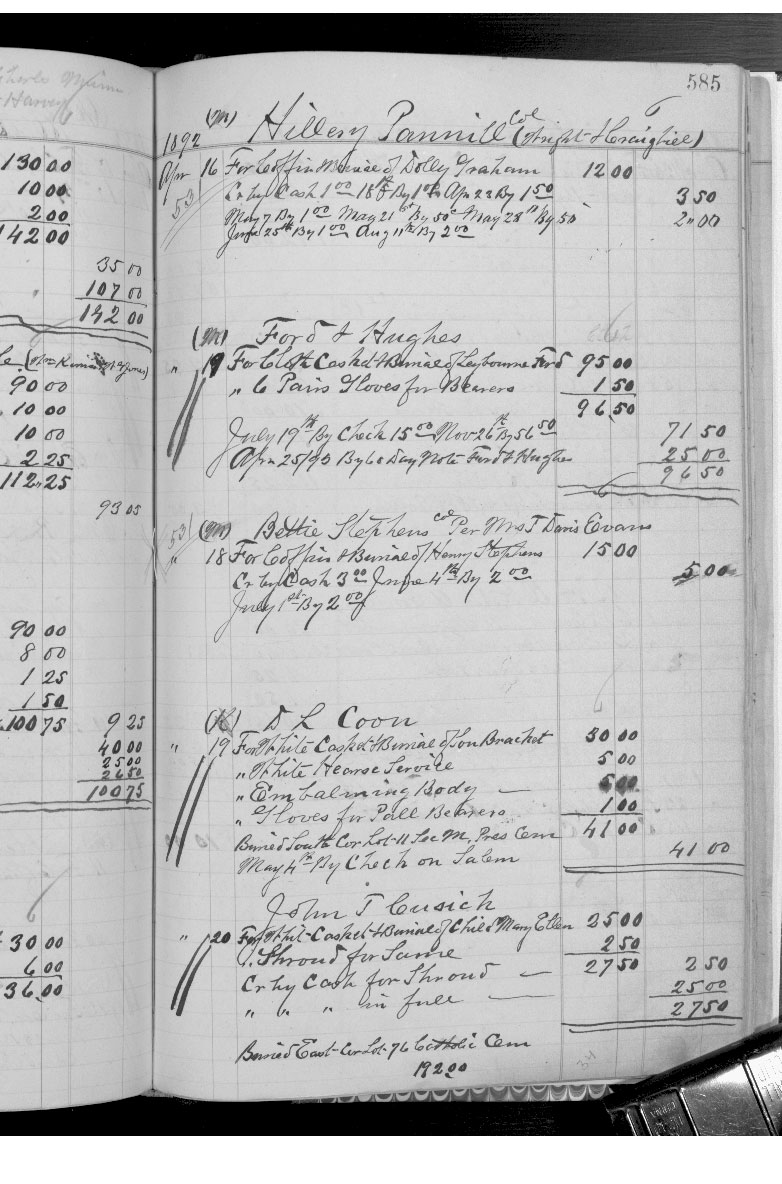 Charle
Harvey
130 00
10 00
2 00
142 00
35 00
107 00
142 00
90 00
10 00
10 00
2 25
112.25
93 05
90 00
8 00
1 25
1 50
100 75
9 25
40 00
25 00
26 50
100 75
30 00
6 00
36.00
585
(M) Hillery Pannill Col (Wright & Craighiel)
1892
Apr 16 For Coffin & Burial of Dolly Graham 12 00
53 Cr by Cash 1 00 18th By 1 Apr 23 By 1 50 3 50
May 7 By 1 00 May 21st By 50c May 28th By 50 2 00
June 25th By 1 00 Aug 11th By 2 00
(M) Ford & Hughes
" 19 For Cloth Casket & Burial of Leybourne Ford 95 00
" 6 Pairs Gloves for Bearers 1 50
96.50
July 19th By Check 15 00 Nov 26th By 56 50 71 50
Apr 25/93 By 60 Day Note Ford & Hughes 25 00
96 50
53 (M) Bettie Stephens col Per Mrs T Davis Evans
" 18 For Coffin & Burial of Henry Stephens 15 00
Cr by Cash 3 00 June 4th By 2 00 5 00
July 1st By 2 00
D L Coon
" 19 For White Casket & Burial of Son Bracket 30 00
" White Hearse Service 5 00
" Embalming Body — 5 00
" Gloves for Pall Bearers 1 00
41 00
Buried South Cor Lot-11 Sec M. Pres Cem
May 4th By Check on Salem 41 00
John T Cusich
" 20 For Whit-Casket & Burial of Child Mary Ellen 25 00
" Shroud for Same 2 50
27 50
Cr by Cash for Shroud — 2 50
" " " in full — 25 00
27 50
Buried East-Cor Lot-76 Catholic Cem
192.00